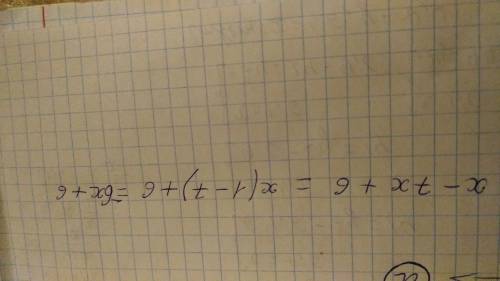 x - 7x + 6 = x(1-7)+6 = -6x+6